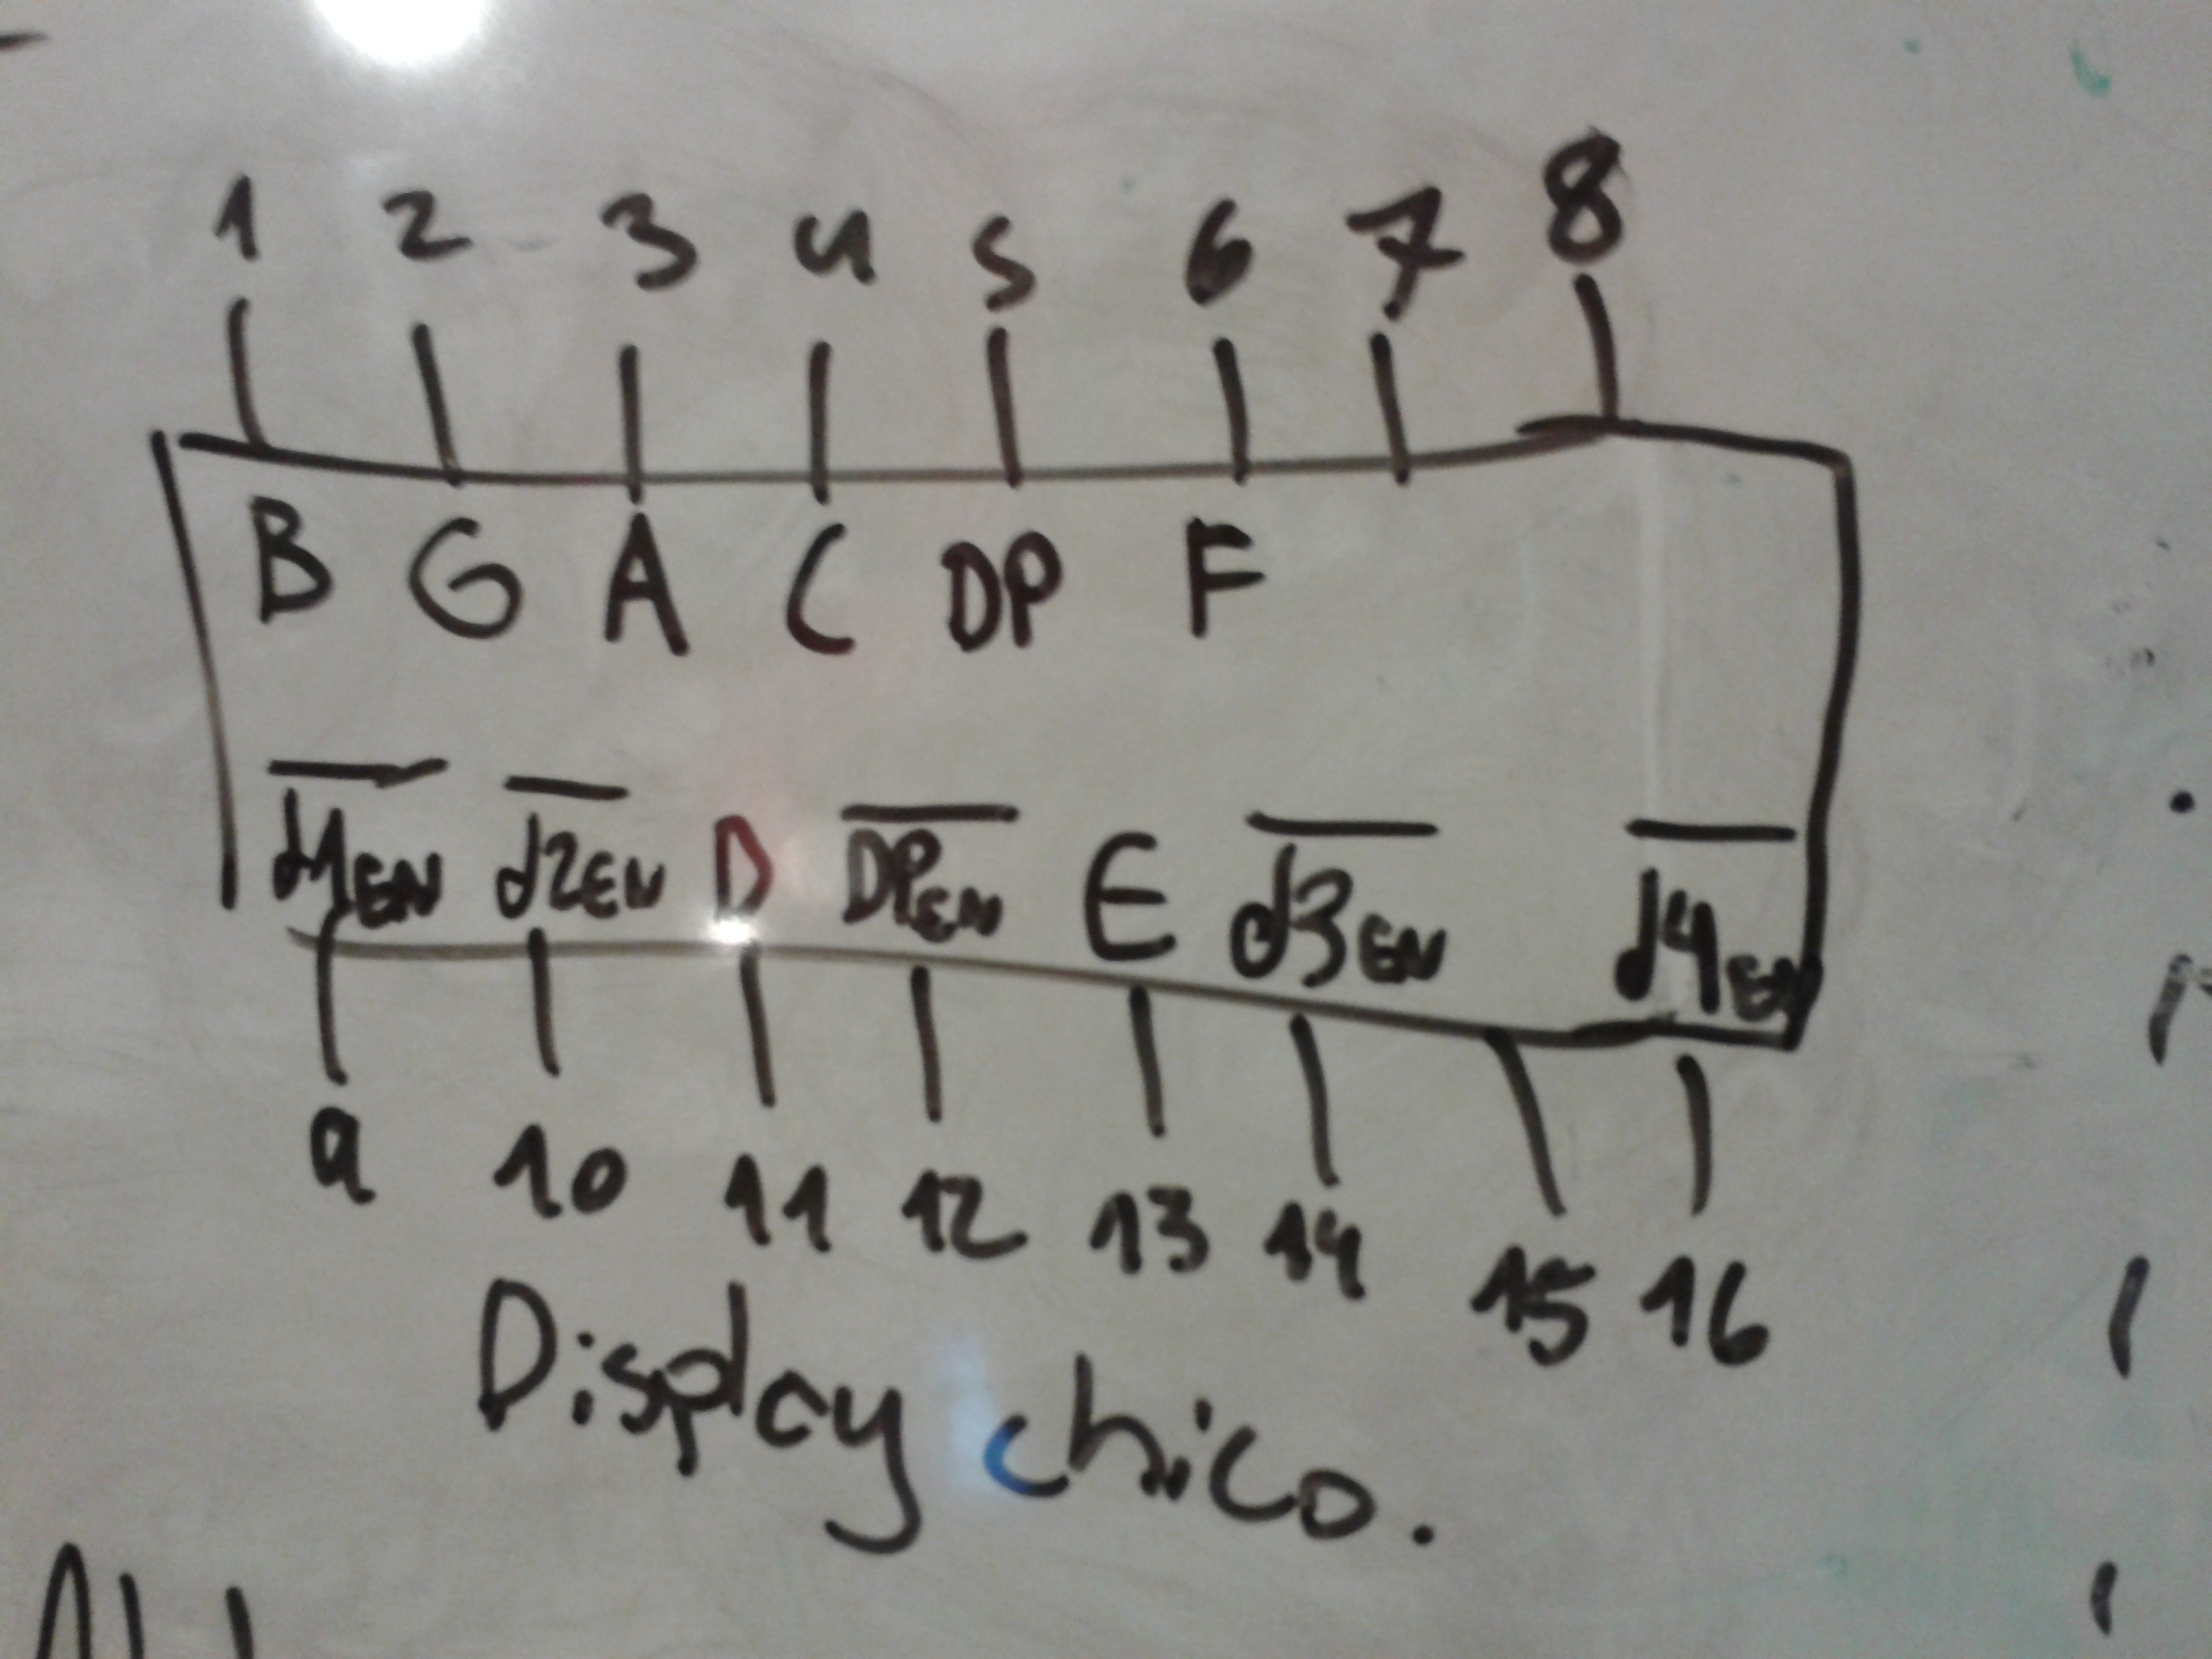 1 2 3 4 5 6 7 8
B G A C DP F
d1EN d2EN D DPEN E d3EN d4EN
9 10 11 12 13 14 15 16
Display chico.